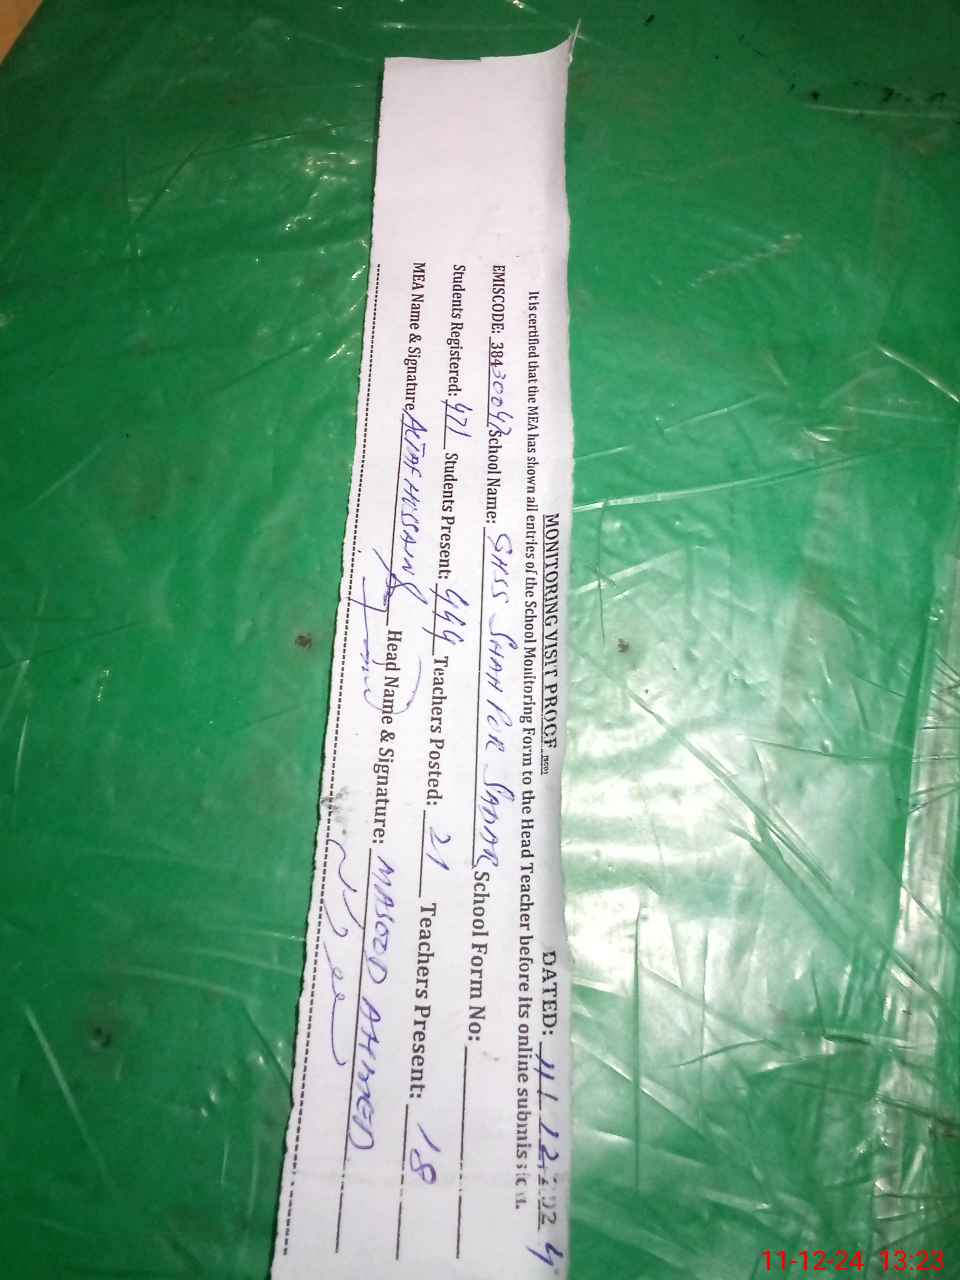 MONITORING VISIT PROOF DATED: 11/12/2024
It is certified that the MEA has shown all entries of the School Monitoring Form to the Head Teacher before its online submission.
EMISCODE: 38430047 School Name: GHSS SHAH PUR SADAR School Form No:
Students Registered: 471 Students Present: 444 Teachers Posted: 21 Teachers Present: 18
MEA Name & Signature ALTAF HUSSAIN Head Name & Signature: MASOOD AHMED
11-12-24 13:23